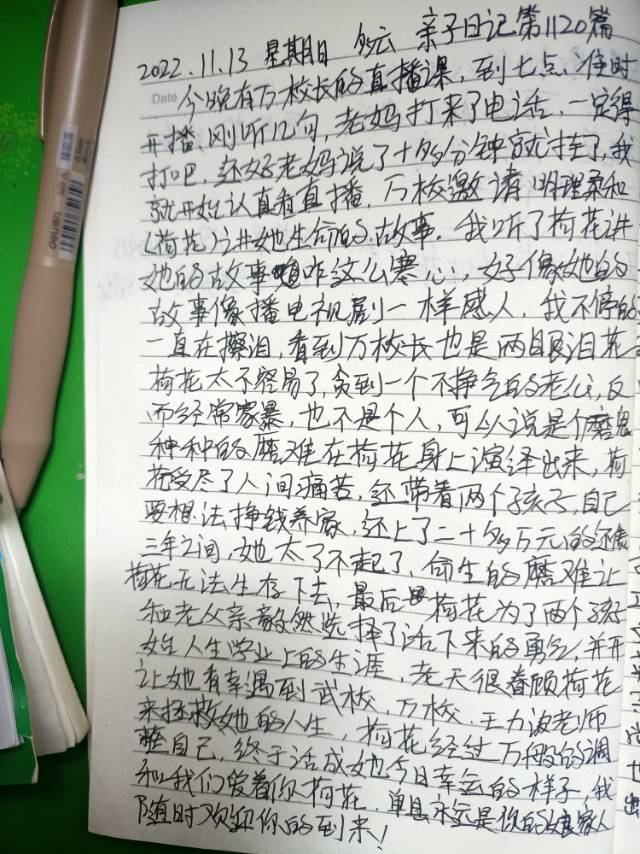 2022.11.13 星期日 多云 亲子日记第1120篇
Date
今晚有万校长的直播课，到七点，准时
开播，刚听几句，老妈打来了电话，一定得
打吧，还好老妈说了十多分钟就挂了，我
就开始认真看直播，万校邀请明理柔和
(荷花)讲她生命的故事。我听了荷花讲
她的故事咱咋这么寒心，好像她的
故事像播电视剧一样感人，我不停的
一直在擦泪，看到万校长也是两眼泪花
荷花太不容易了，贪到一个不挣气的老公，反
而经常家暴，也不是个人，可以说是个磨鬼
种种的磨难在荷花身上演绎出来，荷
花受尽了人间痛苦，还带着两个孩子，自己
要想法挣钱养家，还上了二十多万元的
三年之间，她太了不起了，命生的磨难让
荷花无法生存下去，最后荷花为了两个孩
和老父亲毅然选择了活下来的勇气，并开
始人生学业上的生涯，老天很眷顾荷花
让她有幸遇到武校，万校，王力波老师
来拯救她的人生，荷花经过万般的调
整自己，终于活成她今日幸运的样子，我
和我们爱着你荷花，单县永远是你的娘家人
随时欢迎你的到来！
deli